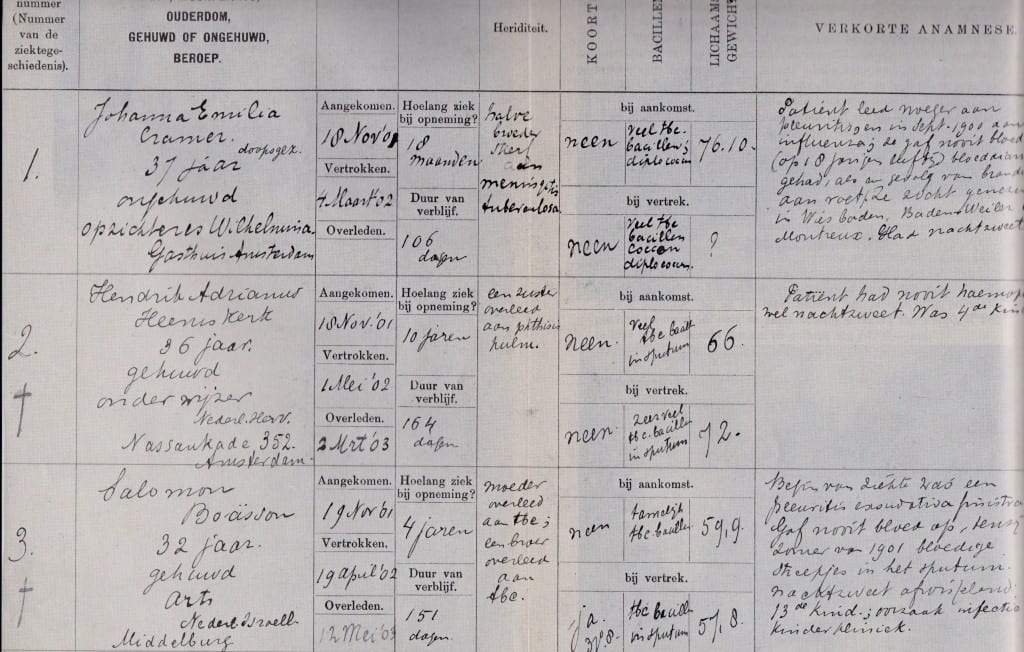 nummer
(Nummer
van de
ziektege-
schiedenis).
OUDERDOM,
GEHUWD OF ONGEHUWD,
BEROEP.
Heriditeit.
KOORT
BACILLEN
LICHAAMS
GEWICHT
VERKORTE ANAMNESE.
1.
Johanna Emilia
Cramer.
doopsgez.
37 jaar
ongehuwd
opzichteres Wilhelmina
Gasthuis Amsterdam
Aangekomen.
18 Nov 01
Vertrokken.
4 Maart '02
Overleden.
Hoelang ziek
bij opneming?
18
maanden
Duur van
verblijf.
106
dagen
halve
broeder
sterf
aan
meningitis
tuberculosa
bij aankomst.
neen
veel tbc.
bacillen;
diplococcen
76.10.
bij vertrek.
neen
veel tbc
bacillen
coccen
diplococcen.
?
Patiënt leed vroeger aan
pleuritis en in Sept. 1901 aan
influenza; de gaf nooit bloed
(op 18 jarigen leeftijd) bloed
gehad, als gevolg van
aan voet; Ze zocht genezen
in Wiesbaden, Baden-Weiler
Montreux. Had nachtzweet
2.
†
Hendrik Adrianus
Heemskerk
36 jaar.
gehuwd
onderwijzer
Nederl. Herv.
Nassaukade 352.
Amsterdam.
Aangekomen.
18 Nov. '01
Vertrokken.
1 Mei '02
Overleden.
2 Mrt '03
Hoelang ziek
bij opneming?
10 jaren
Duur van
verblijf.
164
dagen
een zuster
overleed
aan phthisis
pulm.
bij aankomst.
neen
Veel
tbc bacill
in sputum
66.
bij vertrek.
neen.
zeer veel
tbc. bacillen
in sputum
72.
Patiënt had nooit haemop
wel nachtzweet. Was 4de kind
3.
†
Salomon
Boasson
32 jaar.
gehuwd
arts
Nederl. Israell.
Middelburg
Aangekomen.
19 Nov 01
Vertrokken.
19 april '02
Overleden.
12 Mei '03
Hoelang ziek
bij opneming?
4 jaren
Duur van
verblijf.
151
dagen.
moeder
overleed
aan tbc;
een broer
overleed
aan
tbc.
bij aankomst.
neen
tamelijk
tbc. bacillen
59,9.
bij vertrek.
ja.
37.8.
tbc bacillen
in sputum
57,8.
Begin van ziekte was een
pleuritis exsudativa sinistra
Gaf nooit bloed op, tenzij
zomer van 1901 bloedige
streepjes in het sputum.
nachtzweet afwisselend;
13de kind.; oorzaak infectie
kinderkliniek.